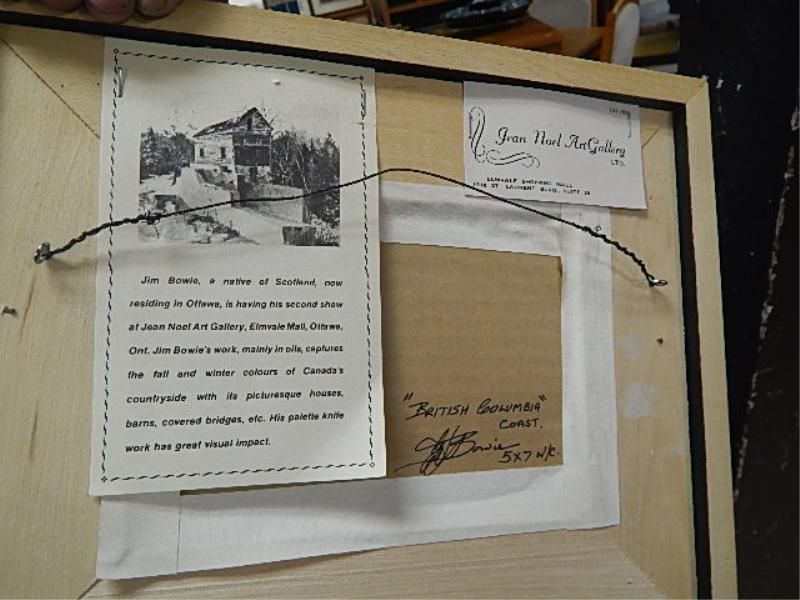 Jim Bowie, a native of Scotland, now
residing in Ottawa, is having his second show
at Jean Noel Art Gallery, Elmvale Mall, Ottawa,
Ont. Jim Bowie's work, mainly in oils, captures
the fall and winter colours of Canada's
countryside with its picturesque houses,
barns, covered bridges, etc. His palette knife
work has great visual impact.
Jean Noel Art Gallery
LTD.
ELMVALE SHOPPING MALL
ST. LAURENT BLVD. SUITE
"BRITISH COLUMBIA"
COAST.
Bowie
5X7 W/C.